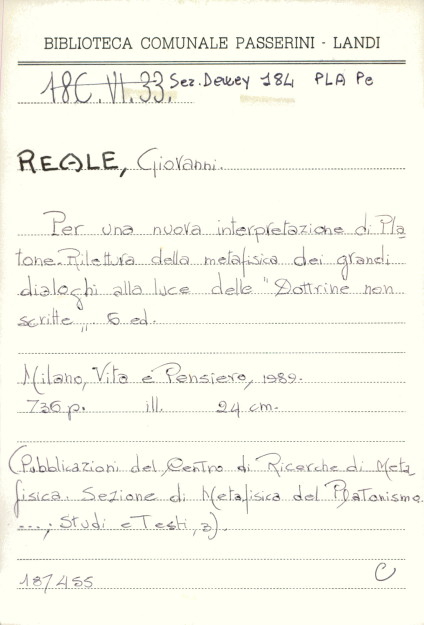 BIBLIOTECA COMUNALE PASSERINI - LANDI
18C.VI.33. Sez. Dewey 184 PLA Pe
REALE, Giovanni.
Per una nuova interpretazione di Pla
tone. Rilettura della metafisica dei grandi
dialoghi alla luce delle "Dottrine non
scritte„ 6 ed.
Milano, Vita e Pensiero, 1989.
736 p. ill. 24 cm.
(Pubblicazioni del Centro di Ricerche di Meta
fisica. Sezione di Metafisica del Platonismo
...; Studi e Testi, 3).
187455 C